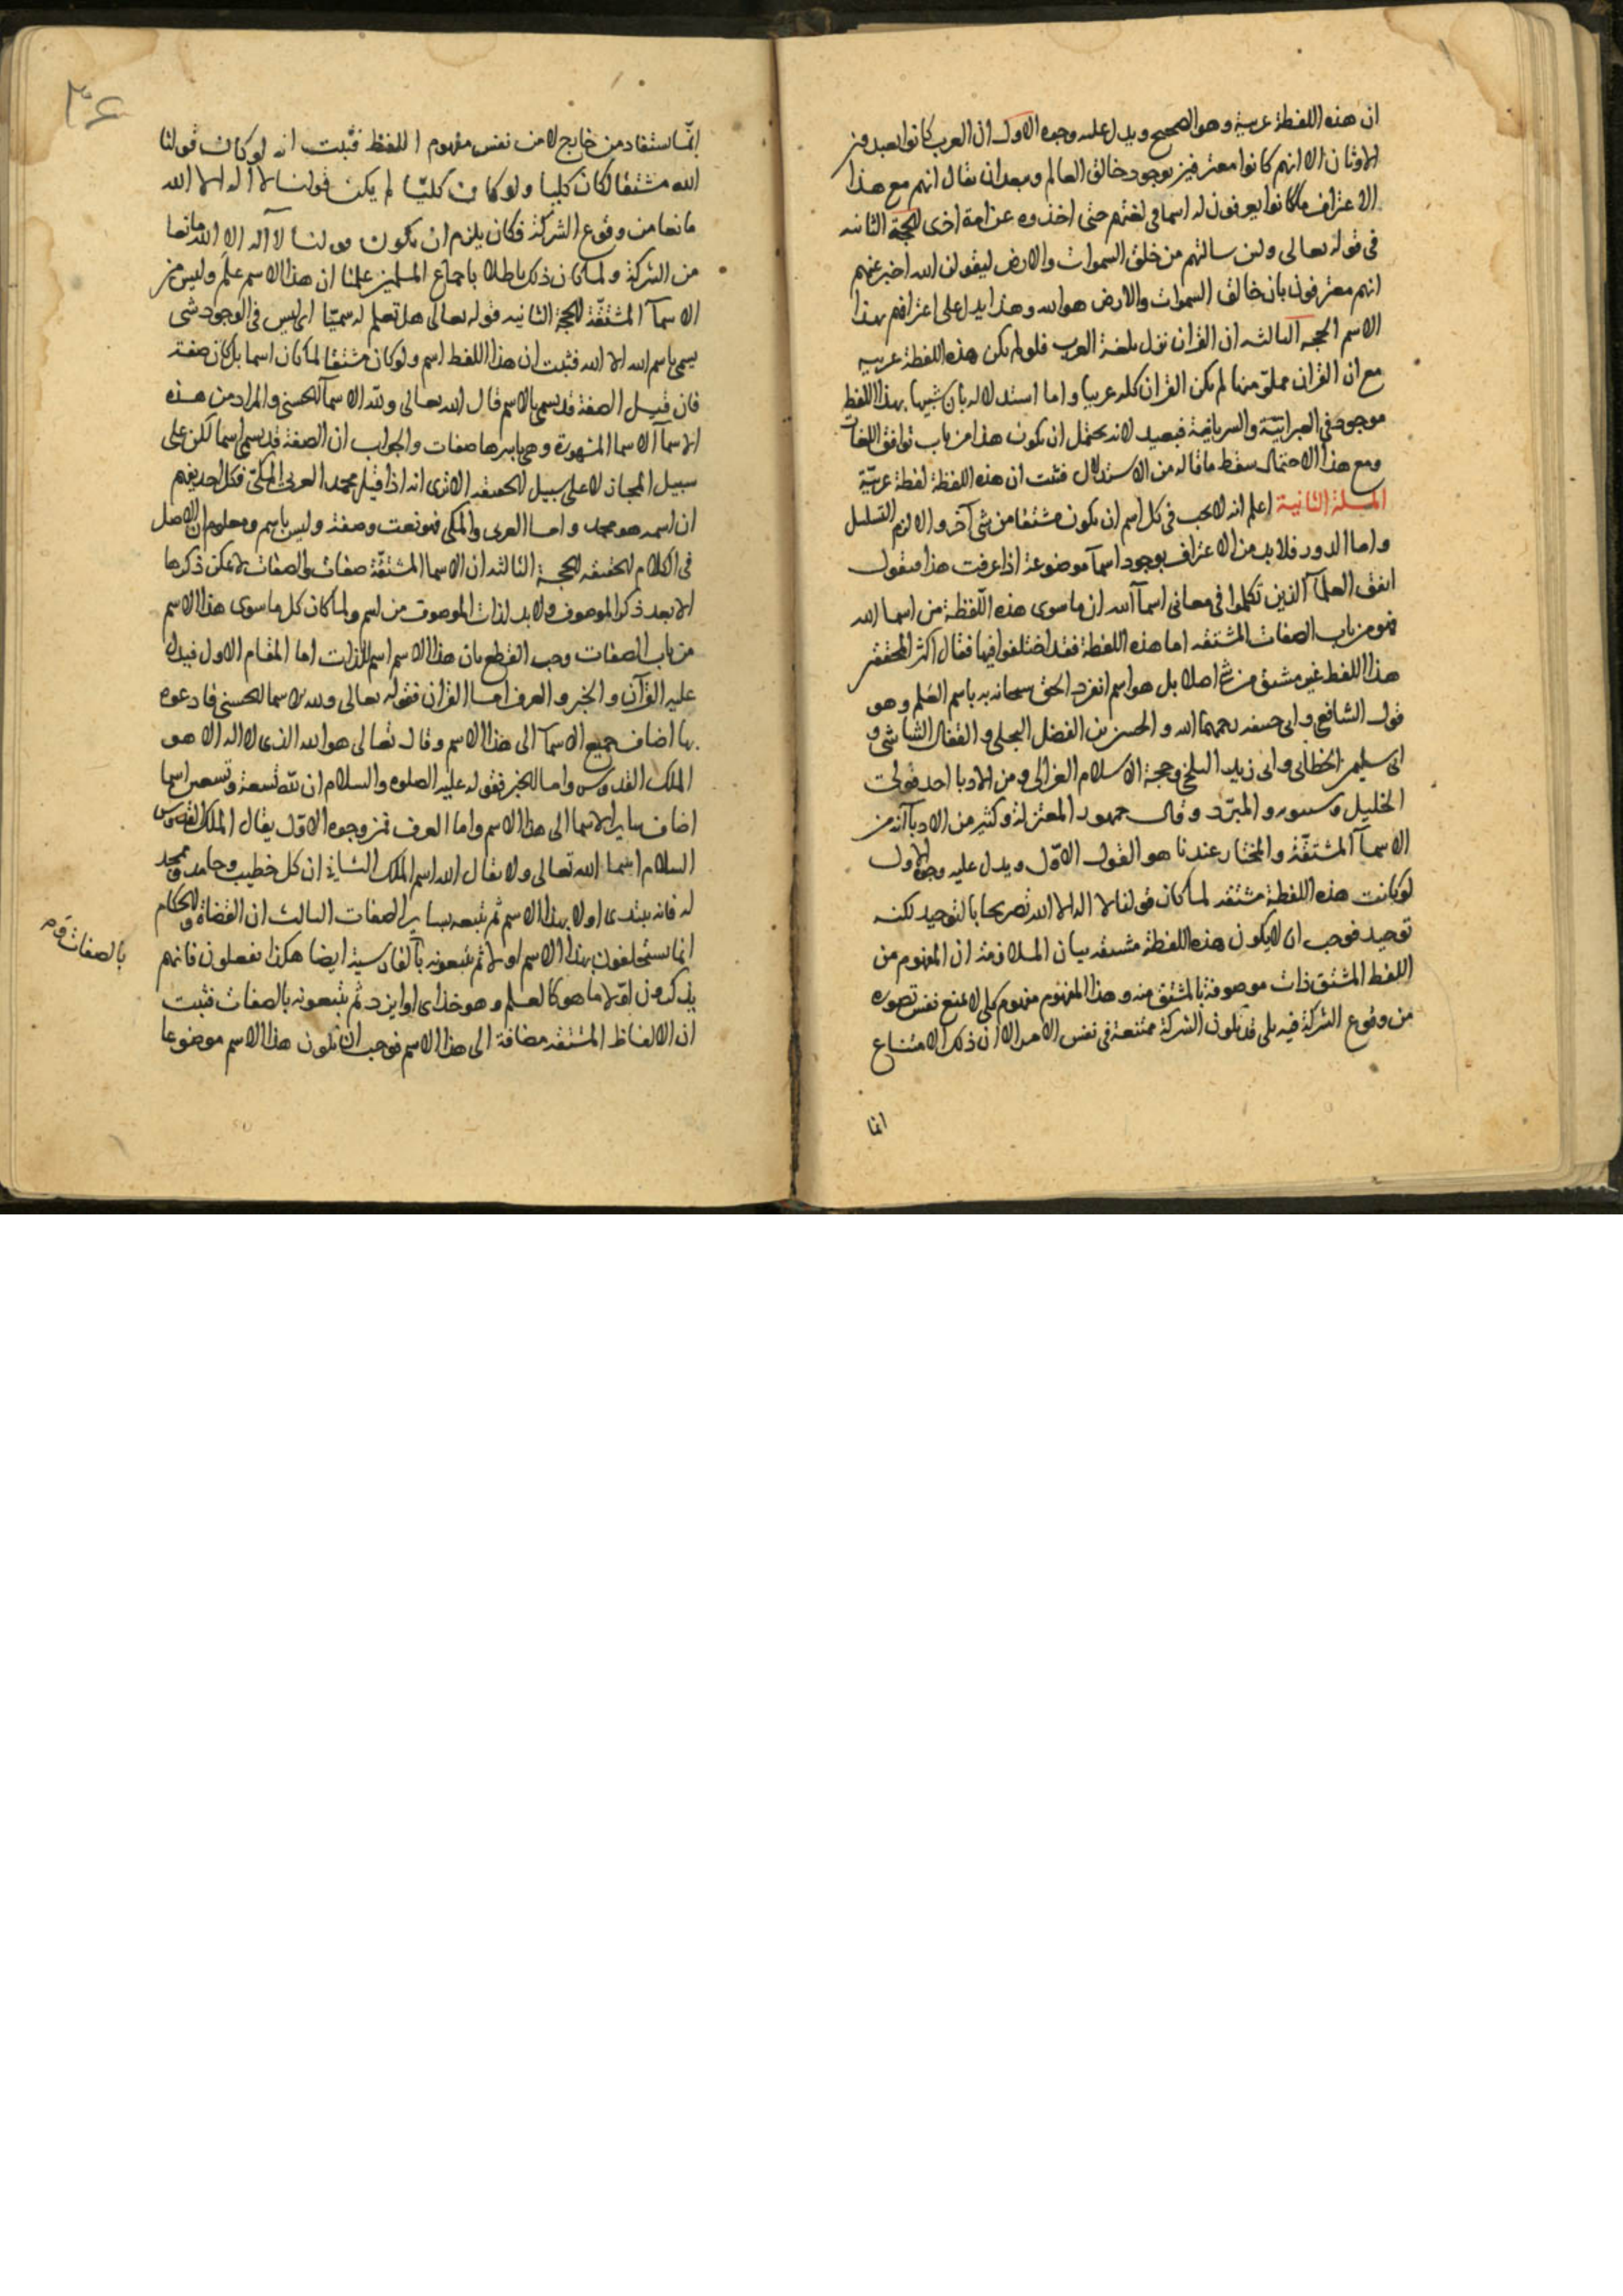 ان هذه اللفظة عربية وهو الصحيح ويدل عليه وجوه الاول ان العرب كانوا يعبدون
الاوثان الا انهم كانوا معترفين بوجود خالق العالم ويبعد ان يقال انهم مع هذا
الاعتراف ما كانوا يعرفون له اسما في لغتهم حتى اخذوه عن امة اخرى الحجة الثانية
في قوله تعالى ولئن سالتهم من خلق السموات والارض ليقولن الله اخبر عنهم
انهم معترفون بان خالق السموات والارض هو الله وهذا يدل على اعترافهم بهذا
الاسم الحجة الثالثة ان القران نزل بلغة العرب فلو لم يكن هذه اللفظة عربية
مع ان القران مملو منها لم يكن القران كله عربيا واما استدلاله بان شبيها بهذا اللفظ
موجود في العبرانية والسريانية فبعيد لانه يحتمل ان يكون هذا من باب توافق اللغات
ومع هذا الاحتمال سقط ما قاله من الاستدلال فثبت ان هذه اللفظة لفظة عربية
المسئلة الثانية اعلم انه لا يجب في كل اسم ان يكون مشتقا من شي آخر والا لزم التسلسل
واما الدور فلا بد من الاعتراف بوجود اسمآ موضوعة اذا عرفت هذا فنقول
اتفق العلمآ الذين تكلموا في معاني اسمآ الله ان ما سوى هذه اللفظة من اسما الله
فهو من باب الصفات المشتقه اما هذه اللفظة فقد اختلفوا فيها فقال اكثر المحققين
هذا اللفظ غير مشتق من شي اصلا بل هو اسم انفرد الحق سبحانه به باسم العلم وهو
قول الشافعي وابي حنيفه رحمهما الله والحسين بن الفضل البجلي والقفال الشاشي و
ابي سليمن الخطابي وابي زيد البلخي وحجة الاسلام الغزالي ومن الادبا احد قولي
الخليل وسيبويه والمبرد وقال جمهور المعتزلة وكثير من الادبآ انه من
الاسمآ المشتقة والمختار عندنا هو القول الاول ويدل عليه وجوه الاول
لو كانت هذه اللفظة مشتقه لما كان قولنا لا اله الا الله تصريحا بالتوحيد لكنه
توحيد فوجب ان لا يكون هذه اللفظة مشتقه بيان الملازمة ان المفهوم من
اللفظ المشتق ذات موصوفة بالمشتق منه وهذا المفهوم مفهوم كلي لا يمنع نفس تصوره
من وقوع الشركة فيه بلى قد يكون الشركة ممتنعة في نفس الامر الا ان ذلك الامتناع
انما
٣٤
انما يستفاد من خارج لا من نفس مفهوم اللفظ فثبت انه لو كان قولنا
الله مشتقا لكان كليا ولو كان كليا لم يكن قولنا لا اله الا الله
مانعا من وقوع الشركة فكان يلزم ان يكون قولنا لا اله الا الله مانعا
من الشركة ولما كان ذلك باطلا باجماع المسلمين علمنا ان هذا الاسم علم وليس من
الاسمآ المشتقة الحجة الثانيه قوله تعالى هل تعلم له سميا اي ليس في الوجود شي
يسمى باسم الله الا الله فثبت ان هذا اللفظ اسم ولو كان مشتقا لما كان اسما بل كان صفة
فان قيل الصفة قد يسمى بالاسم قال الله تعالى ولله الاسمآ الحسنى والمراد من هذه
الاسمآ الاسما المشهورة وهي باسرها صفات والجواب ان الصفة قد يسمى اسما لكن على
سبيل المجاز لا على سبيل الحقيقه الا ترى انه اذا قيل محمد العربي المكي فكل احد يفهم
ان اسمه هو محمد واما العربي والمكي فهو نعت وصفة وليس باسم ومعلوم ان الاصل
في الكلام الحقيقه الحجة الثالثه ان الاسما المشتقة صفات والصفات لا يمكن ذكرها
الا بعد ذكر الموصوف ولا بد لذات الموصوف من اسم ولما كان كل ما سوى هذا الاسم
من باب الصفات وجب القطع بان هذا الاسم اسم للذات اما المقام الاول فيدل
عليه القرآن والخبر والعرف اما القران فقوله تعالى ولله الاسما الحسنى فادعوه
بها اضاف جميع الاسمآ الى هذا الاسم وقال تعالى هو الله الذي لا اله الا هو
الملك القدوس واما الخبر فقوله عليه الصلوه والسلام ان لله تسعة وتسعين اسما
اضاف ساير الاسما الى هذا الاسم واما العرف فمن وجوه الاول يقال الملك القدوس
السلام اسما الله تعالى ولا يقال الله اسم الملك الثاني ان كل خطيب وحامد وممجد
له فانه يبتدى اولا بهذا الاسم ثم يتبعه بساير الصفات الثالث ان القضاة والحكام
انما يستحلفون بهذا الاسم اولا ثم يتبعونه بالفارسية ايضا هكذا يفعلون فانهم
بالصفات
يذكرون اولا ما هو كالعلم وهو خداى او ايزد ثم يتبعونه بالصفات فثبت
ان الالفاظ المشتقه مضافة الى هذا الاسم فوجب ان تكون هذا الاسم موضوعا